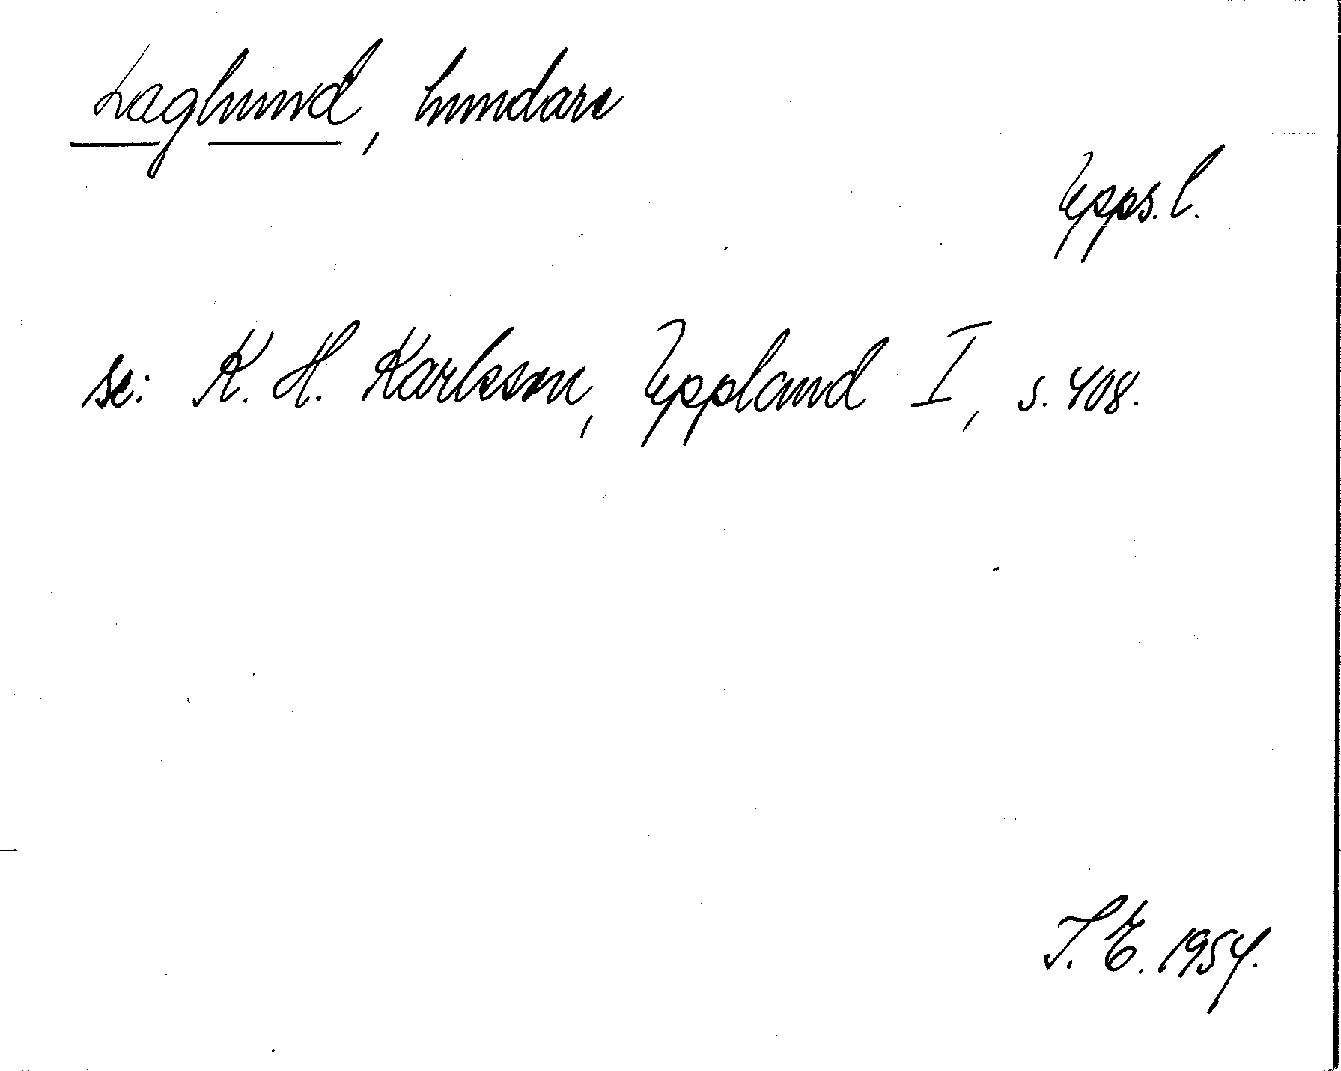 Laghund, hundare
Upps. l.
se: K. H. Karlsson, Uppland I, s. 408.
I. E. 1954.